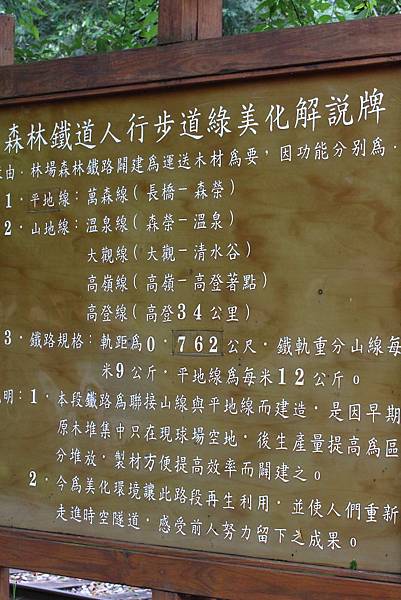 森林鐵道人行步道綠美化解說牌
由．林場森林鐵路開建為運送木材為要，因功能分別為．
1．平地線：萬森線（長橋－森榮）
2．山地線：溫泉線（森榮－溫泉）
大觀線（大觀－清水谷）
高嶺線（高嶺－高登著點）
高登線（高登34公里）
3．鐵路規格：軌距為0．762公尺．鐵軌重分山線每
米9公斤．平地線為每米12公斤。
明：1．本段鐵路為聯接山線與平地線而建造．是因早期
原木堆集中只在現球場空地．後生產量提高為區
分堆放．製材方便提高效率而開建之。
2．今為美化環境讓此路段再生利用．並使人們重新
走進時空隧道．感受前人努力留下之成果。